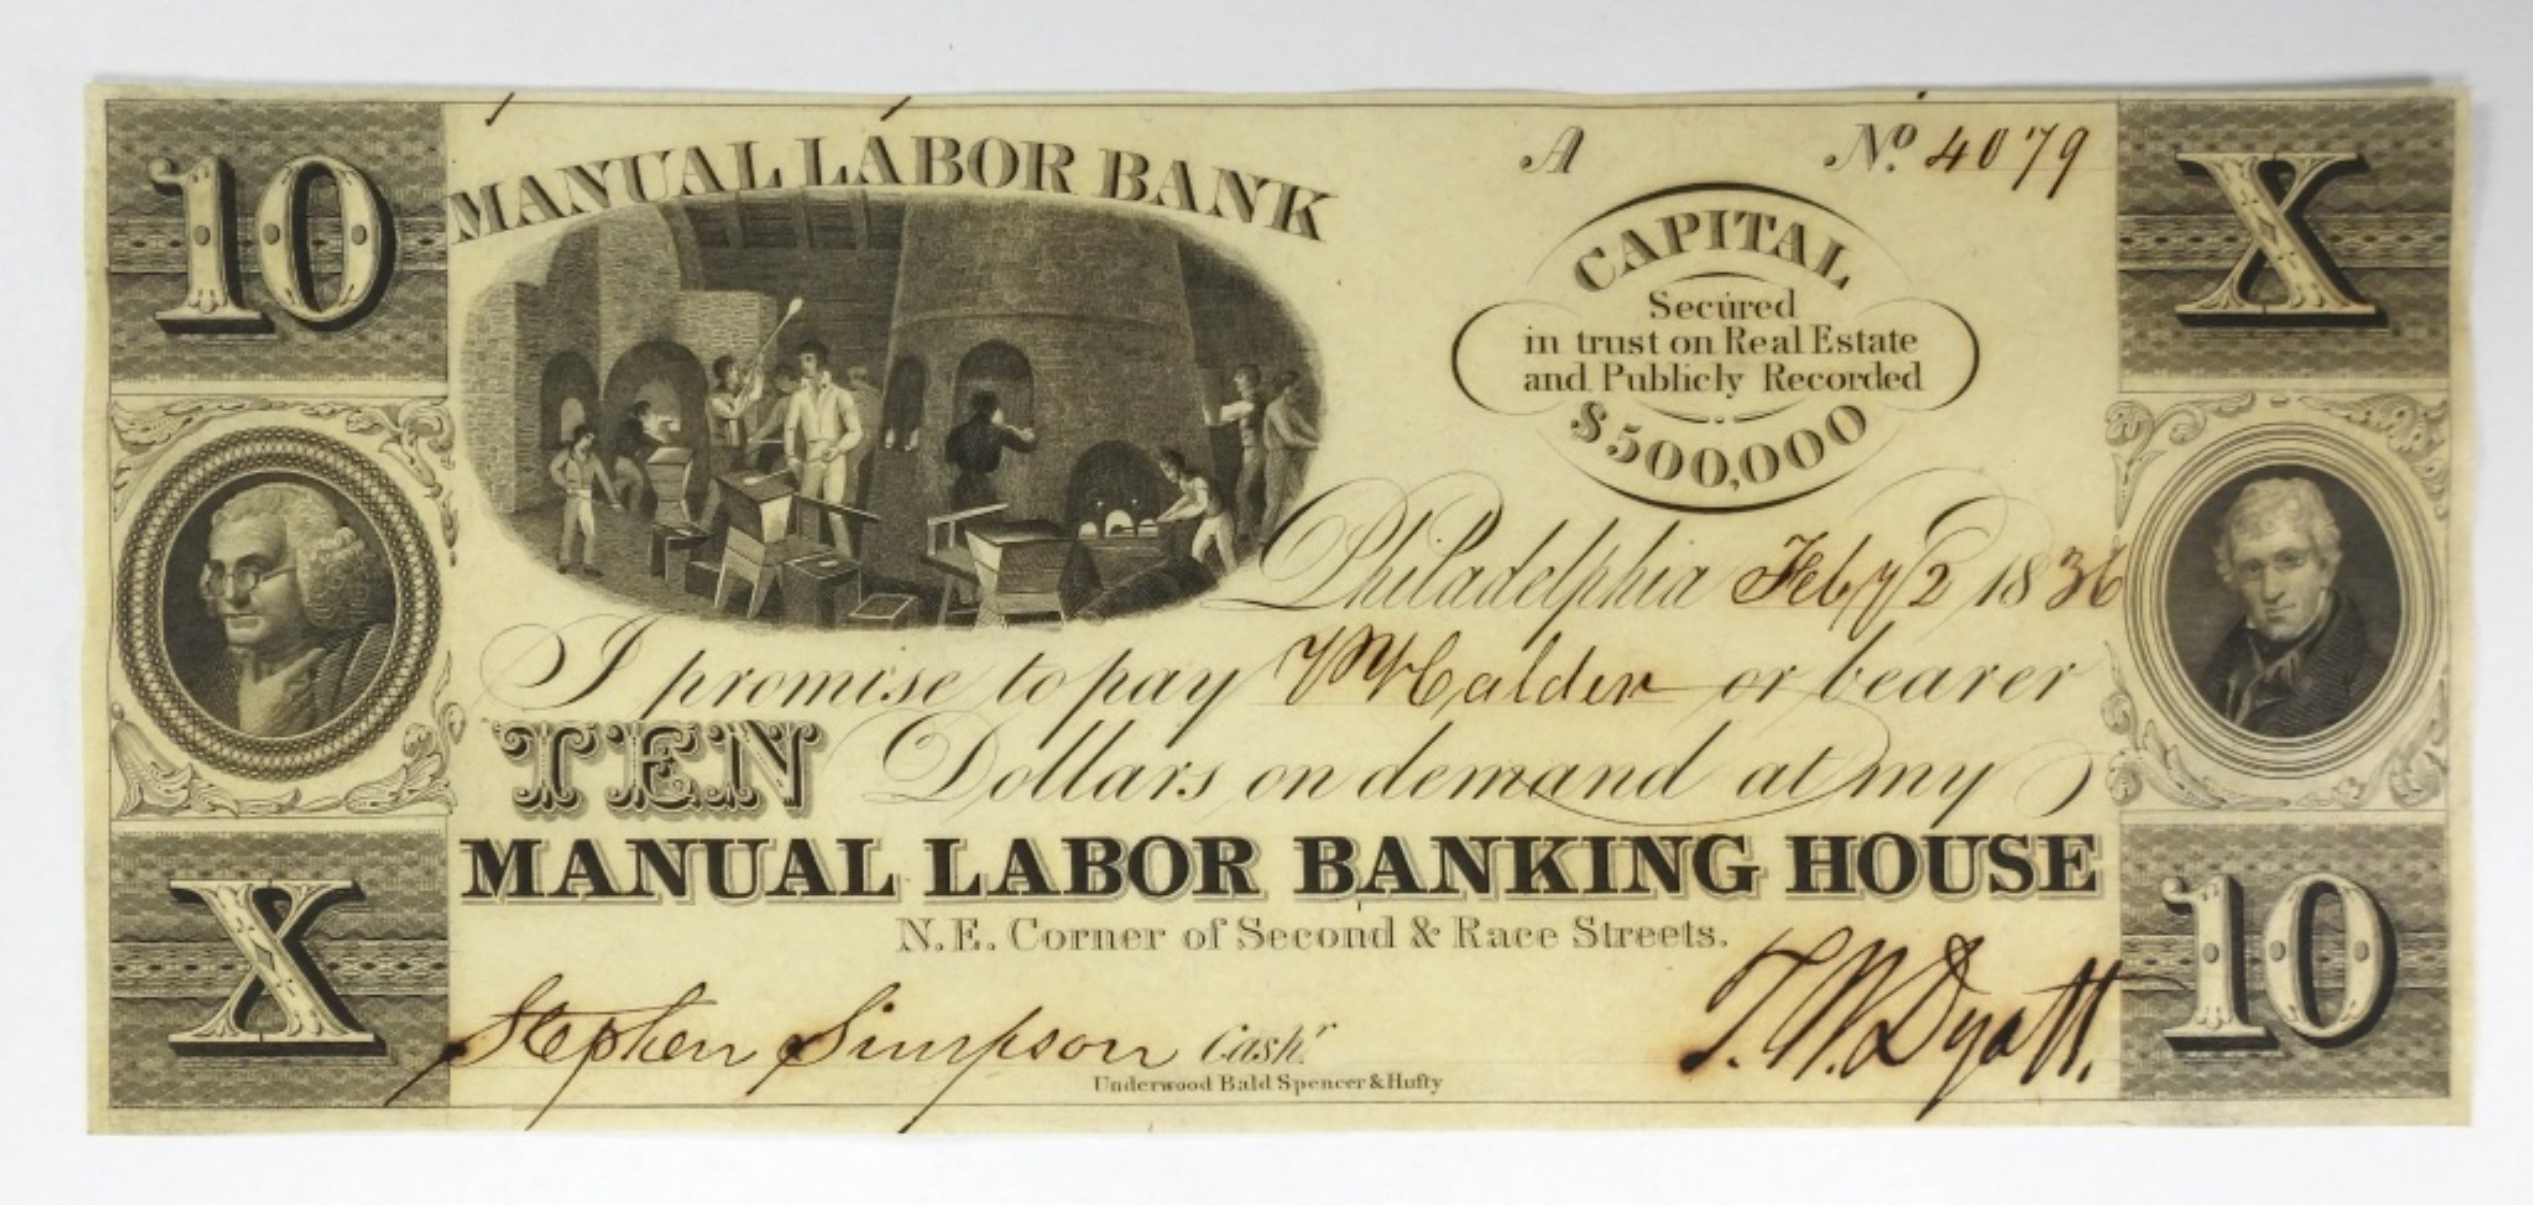 10
MANUAL LABOR BANK
A
No. 4079
X
CAPITAL
Secured
in trust on Real Estate
and Publicly Recorded
$500,000
Philadelphia Feby 2 1836
I promise to pay Calder or bearer
TEN Dollars on demand at my
MANUAL LABOR BANKING HOUSE
N.E. Corner of Second & Race Streets.
X
Stephen Simpson Cashr.
T. W. Dyott.
10
Underwood Bald Spencer & Hufty